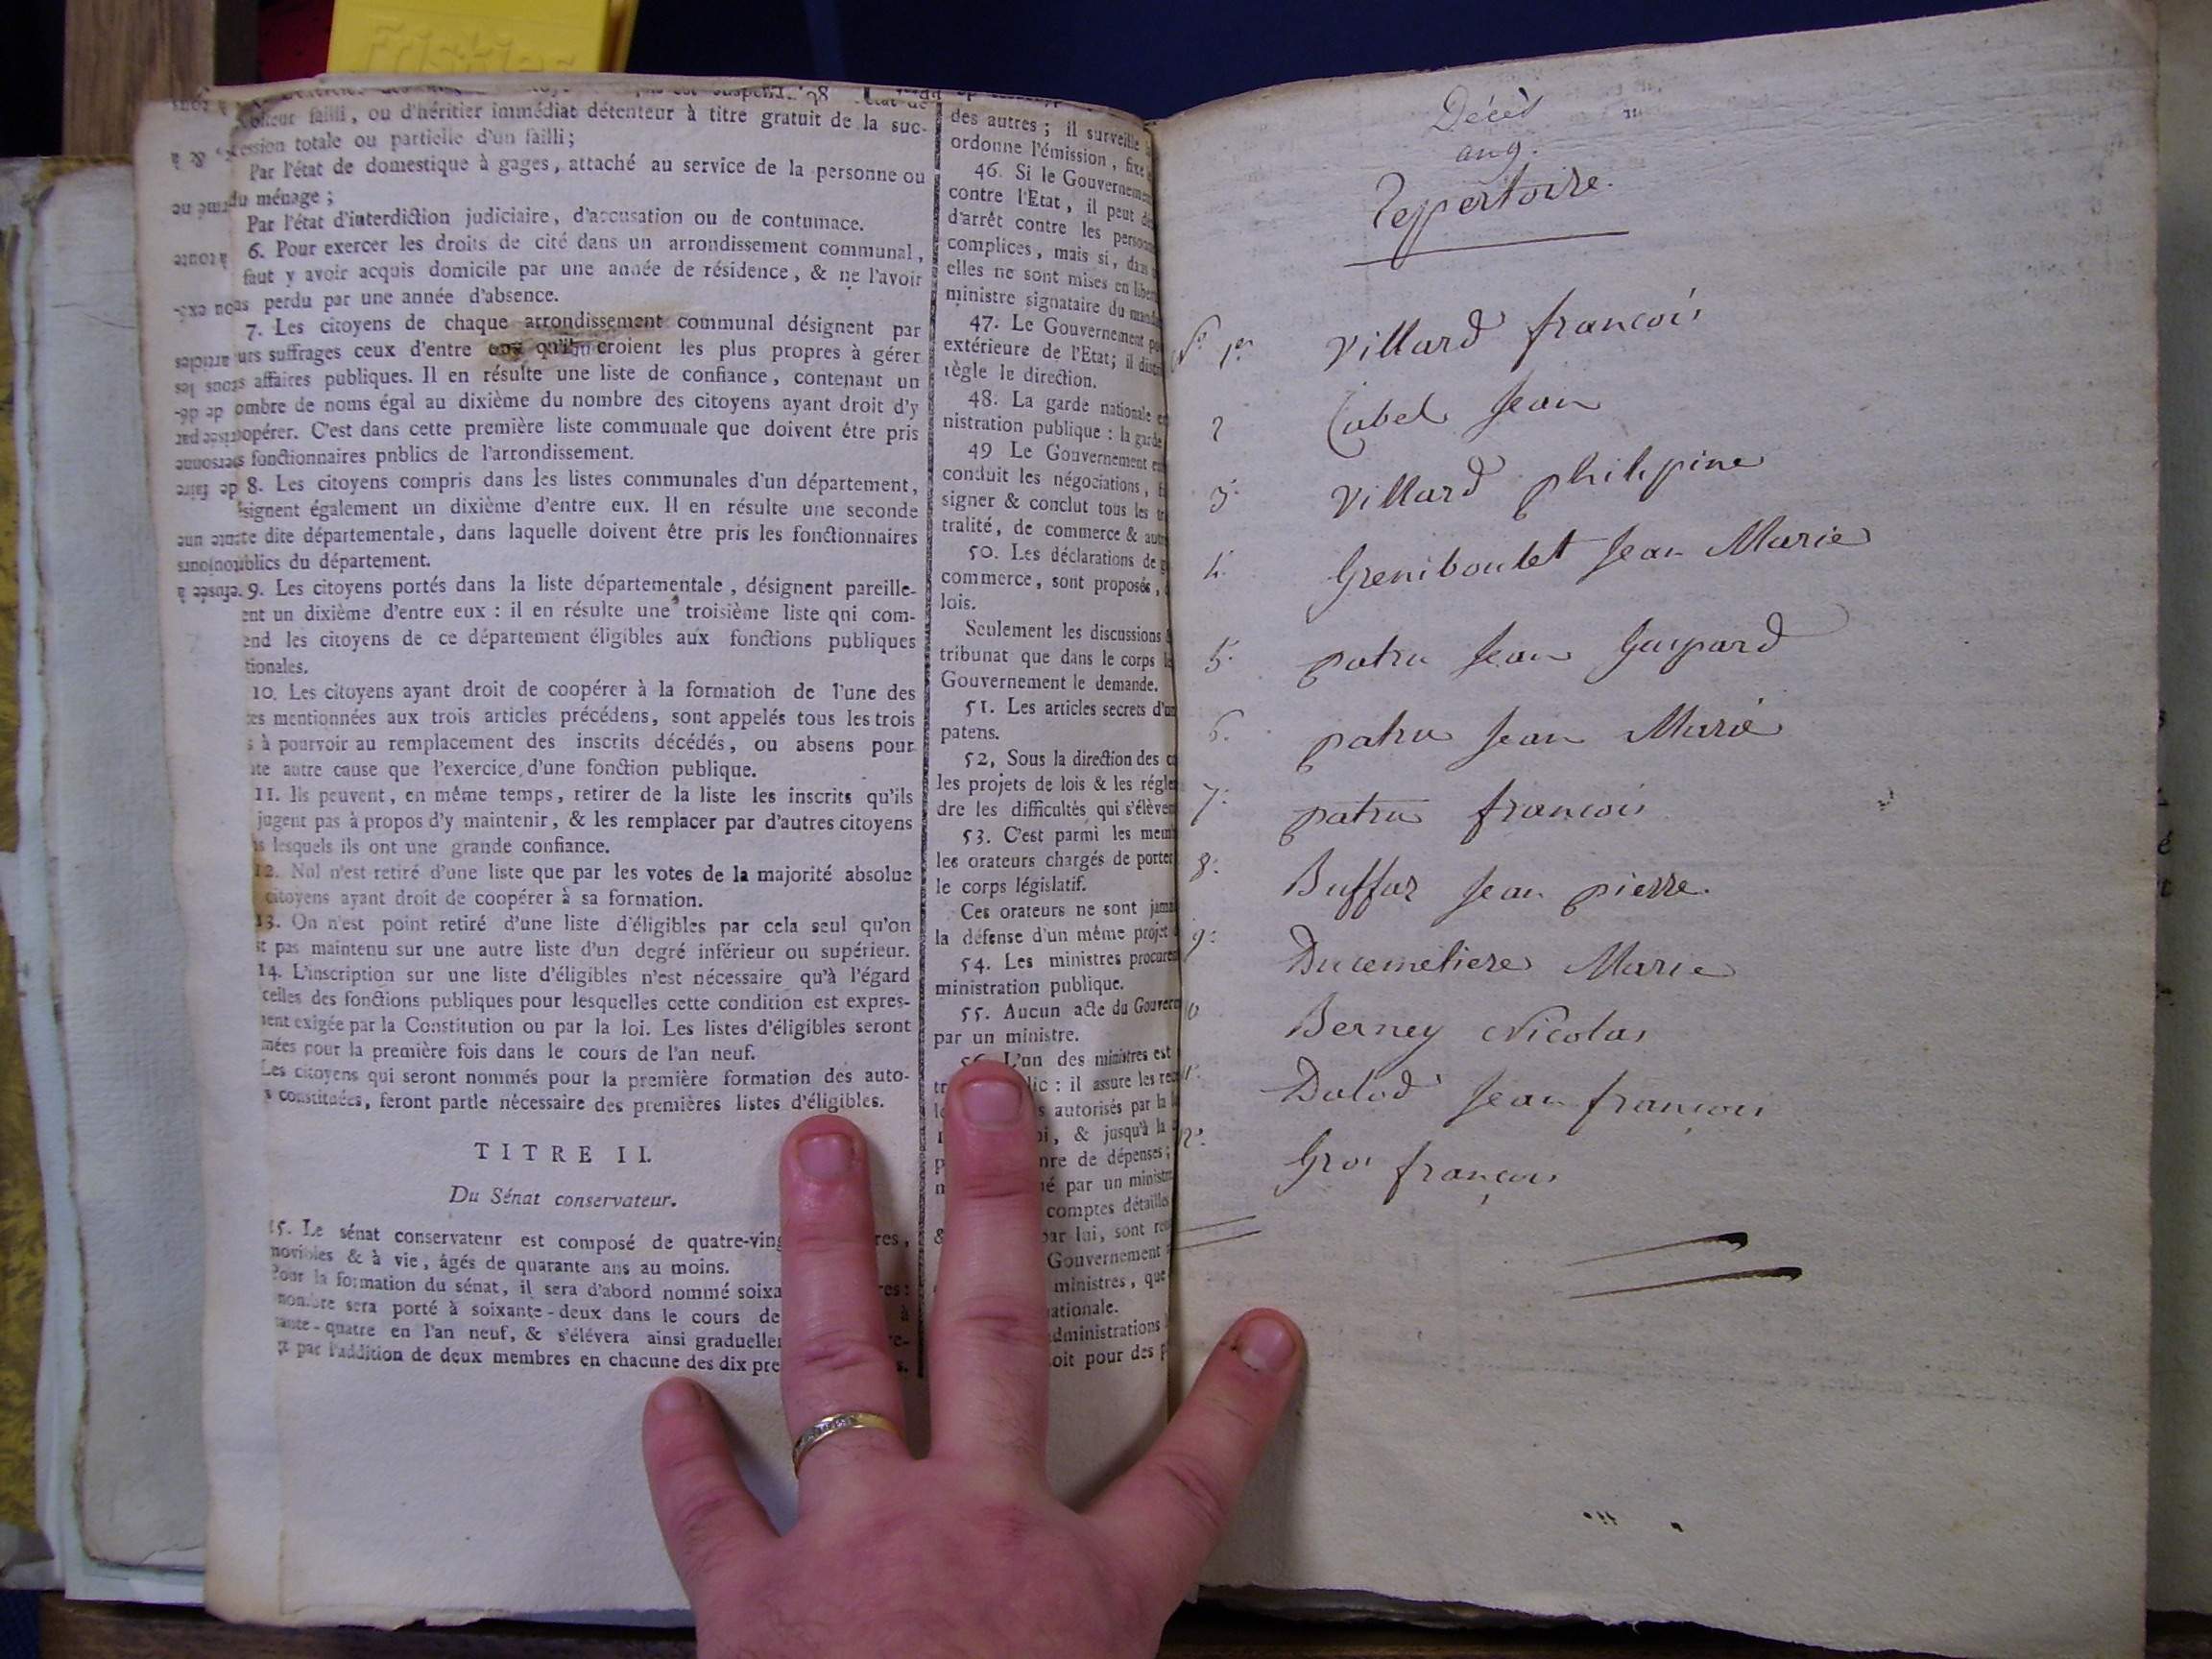 Friskies
colteur failli, ou d'héritier immédiat détenteur à titre gratuit de la suc-
cession totale ou partielle d'un failli;
Par l'état de domestique à gages, attaché au service de la personne ou
du ménage;
Par l'état d'interdiction judiciaire, d'accusation ou de contumace.
6. Pour exercer les droits de cité dans un arrondissement communal,
faut y avoir acquis domicile par une année de résidence, & ne l'avoir
as perdu par une année d'absence.
7. Les citoyens de chaque arrondissement communal désignent par
urs suffrages ceux d'entre eux qu'ils croient les plus propres à gérer
affaires publiques. Il en résulte une liste de confiance, contenant un
ombre de noms égal au dixième du nombre des citoyens ayant droit d'y
opérer. C'est dans cette première liste communale que doivent être pris
s fonctionnaires pnblics de l'arrondissement.
8. Les citoyens compris dans les listes communales d'un département,
signent également un dixième d'entre eux. Il en résulte une seconde
te dite départementale, dans laquelle doivent être pris les fonctionnaires
ublics du département.
9. Les citoyens portés dans la liste départementale, désignent pareille-
ent un dixième d'entre eux : il en résulte une troisième liste qni com-
end les citoyens de ce département éligibles aux fonctions publiques
tionales.
10. Les citoyens ayant droit de coopérer à la formation de l'une des
es mentionnées aux trois articles précédens, sont appelés tous les trois
s à pourvoir au remplacement des inscrits décédés, ou absens pour
te autre cause que l'exercice d'une fonction publique.
11. Ils peuvent, en même temps, retirer de la liste les inscrits qu'ils
jugent pas à propos d'y maintenir, & les remplacer par d'autres citoyens
s lesquels ils ont une grande confiance.
12. Nul n'est retiré d'une liste que par les votes de la majorité absolue
citoyens ayant droit de coopérer à sa formation.
13. On n'est point retiré d'une liste d'éligibles par cela seul qu'on
st pas maintenu sur une autre liste d'un degré inférieur ou supérieur.
14. L'inscription sur une liste d'éligibles n'est nécessaire qu'à l'égard
celles des fonctions publiques pour lesquelles cette condition est expres-
ment exigée par la Constitution ou par la loi. Les listes d'éligibles seront
mées pour la première fois dans le cours de l'an neuf.
Les citoyens qui seront nommés pour la première formation des auto-
s constituées, feront partie nécessaire des premières listes d'éligibles.
TITRE II.
Du Sénat conservateur.
15. Le sénat conservateur est composé de quatre-ving res,
movibles & à vie, âgés de quarante ans au moins.
Pour la formation du sénat, il sera d'abord nommé soixa res:
nombre sera porté à soixante-deux dans le cours de à
ante-quatre en l'an neuf, & s'élévera ainsi graduelle
par l'addition de deux membres en chacune des dix pre s.
des autres; il surveille
ordonne l'émission, fixe
46. Si le Gouvernement
contre l'Etat, il peut
d'arrêt contre les personn
complices, mais si, dans
elles ne sont mises en liber
ministre signataire du mand
47. Le Gouvernement
extérieure de l'Etat; il distri
règle le direction.
48. La garde nationale
nistration publique : la garde
49 Le Gouvernement
conduit les négociations,
signer & conclut tous les
tralité, de commerce & aut
50. Les déclarations de
commerce, sont proposés,
lois.
Seulement les discussions
tribunat que dans le corps
Gouvernement le demande.
51. Les articles secrets d'un
patens.
52, Sous la direction des
les projets de lois & les régle
dre les difficultés qui s'élèven
53. C'est parmi les mem
les orateurs chargés de porter
le corps législatif.
Ces orateurs ne sont jama
la défense d'un même projet
54. Les ministres procurent
ministration publique.
55. Aucun acte du Gouvern
par un ministre.
56. L'un des ministres est
lic : il assure les re
s autorisés par la
oi, & jusqu'à la
nre de dépenses;
é par un ministre
comptes détaillés
par lui, sont
Gouvernement
ministres, que
ationale.
administrations
oit pour des
Décès
an 9.
Reppertoire.
N° 1er Villard francois
2 Cubel Jean
3. Villard philipine
4. Greniboulet Jean Marie
5. patru Jean Gaspard
6. patru Jean Marie
7. patru francois
8. Buffaz Jean pierre.
9. Ducimetiere Marie
0 Berney Nicolas
1. Dalod Jean françois
12. Gros françois